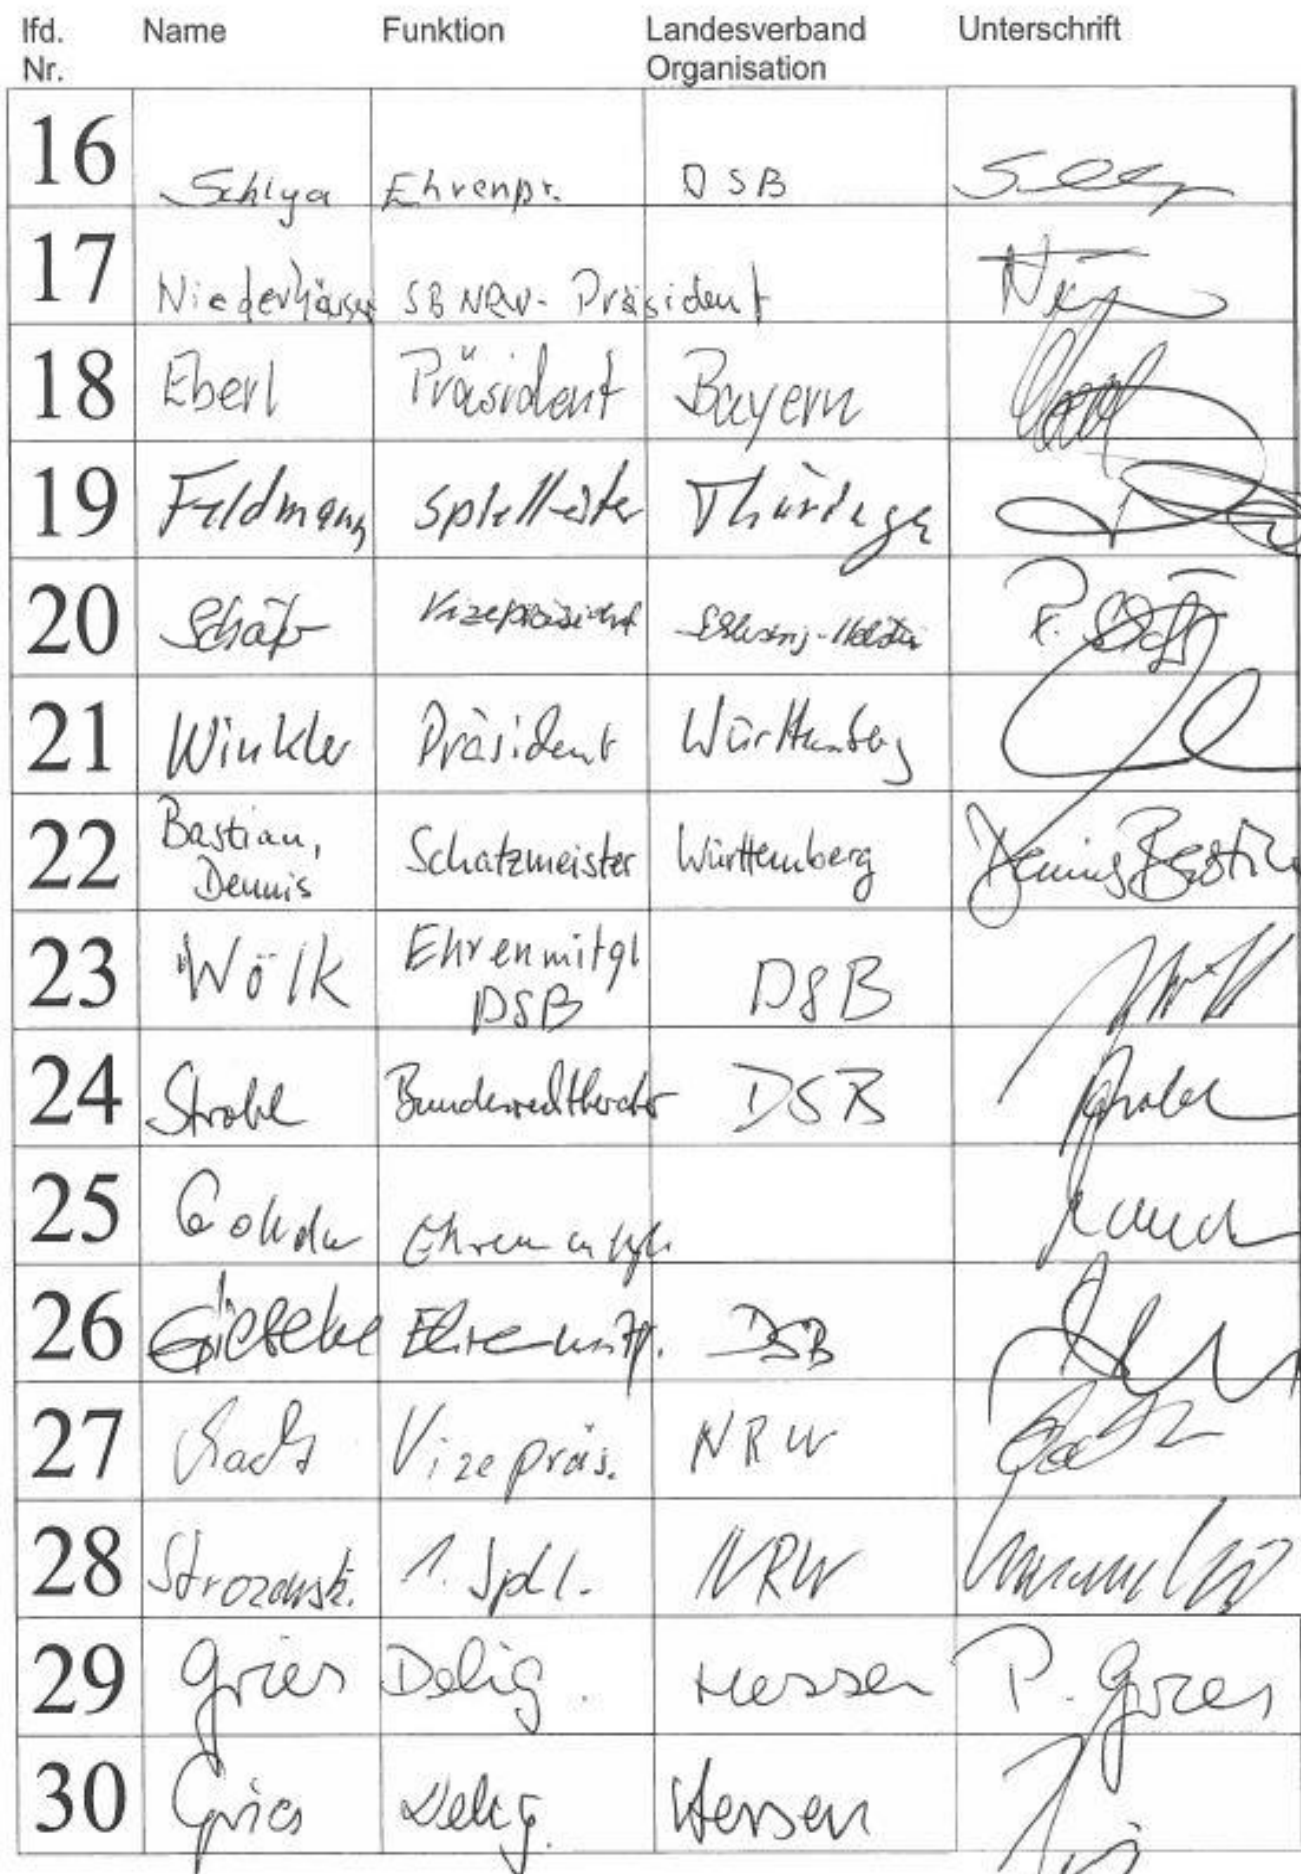 lfd. Name Funktion Landesverband Unterschrift
Nr. Organisation
16 Schlya Ehrenpr. DSB
17 Niederhäuser SB NRW - Präsident
18 Eberl Präsident Bayern
19 Feldmann Thüringen
20 Schäfer Vizepräsident Schleswig-Holstein
21 Winkler Präsident Württemberg
22 Bastian, Dennis Schatzmeister Württemberg Dennis Bastian
23 Wölk Ehrenmitgl DSB DSB
24 Strobl DSB
25 Ehrenmitgl.
26 Gieseke Ehrenmitgl. DSB
27 Vizepräs. NRW
28 1. Spl. NRW
29 Gries Delig. Hessen P. Gries
30 Gries Delig. Hessen